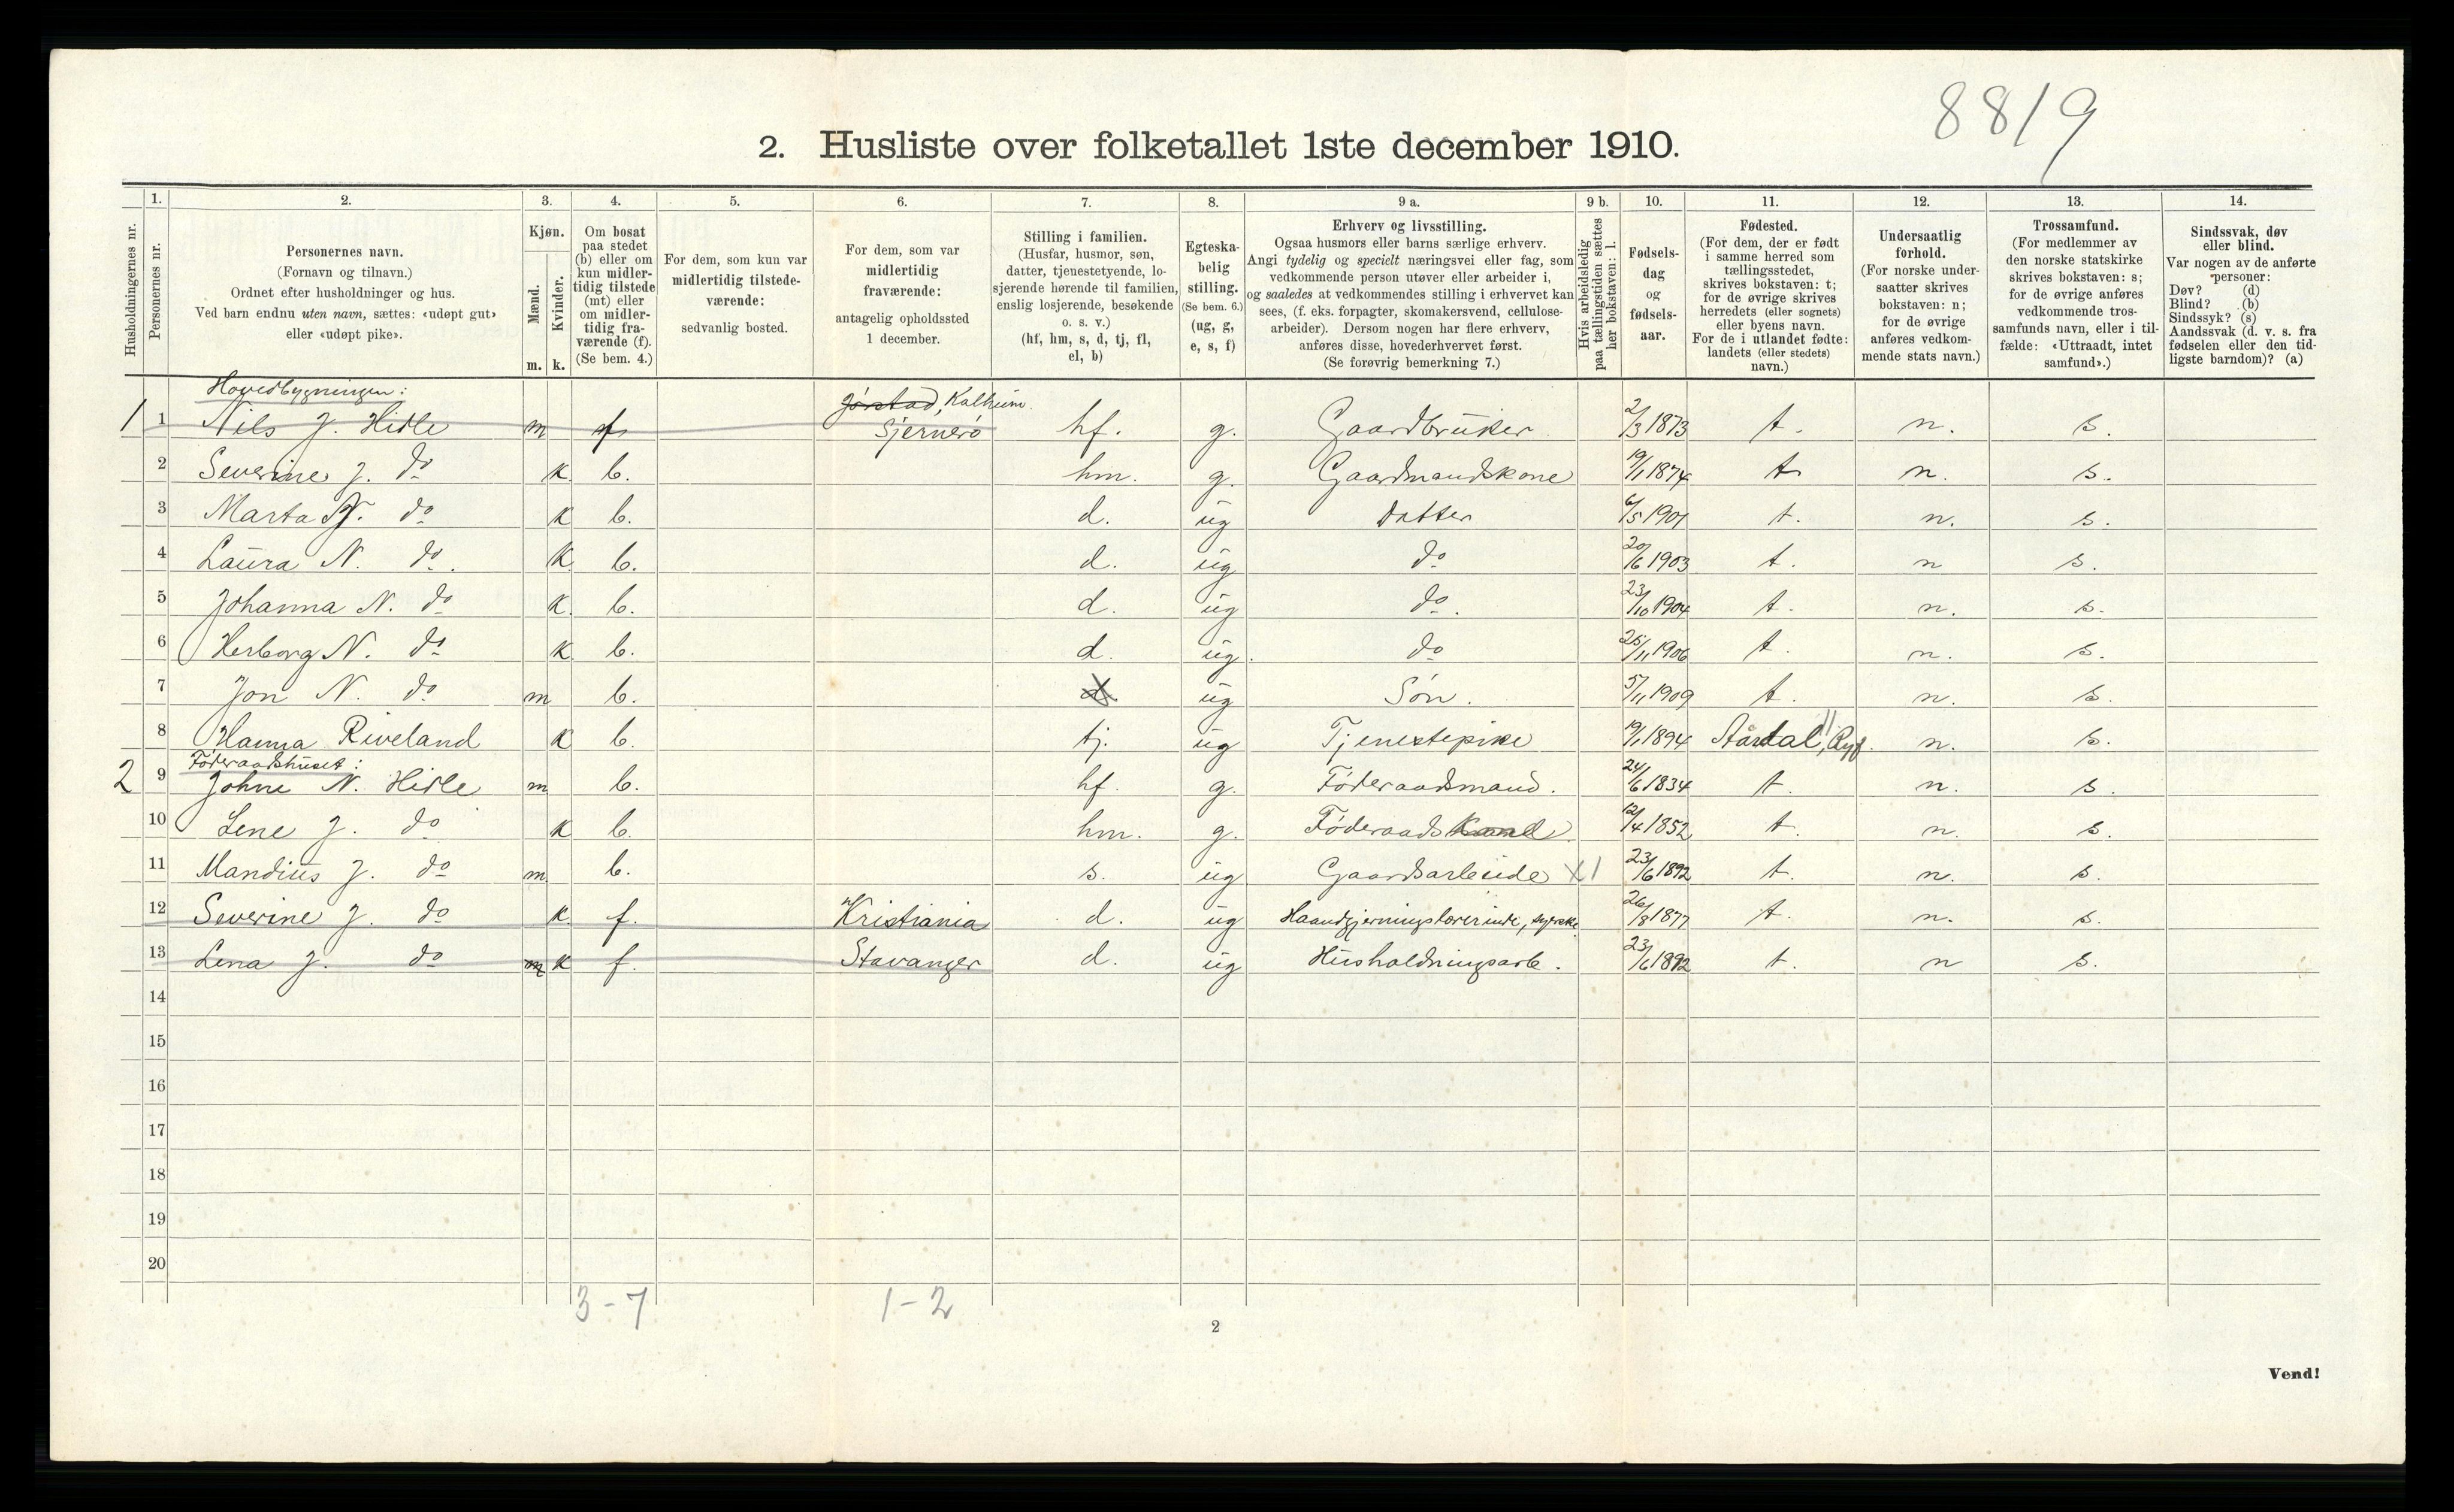 8819
2. Husliste over folketallet 1ste december 1910.
Husholdningernes nr.
1.
Personernes nr.
2.
Personernes navn.
(Fornavn og tilnavn.)
Ordnet efter husholdninger og hus.
Ved barn endnu uten navn, sættes: «udøpt gut»
eller «udøpt pike».
3.
Kjøn.
Mænd.
Kvinder.
m. k.
4.
Om bosat
paa stedet
(b) eller om
kun midler-
tidig tilstede
(mt) eller
om midler-
tidig fra-
værende (f).
(Se bem. 4.)
5.
For dem, som kun var
midlertidig tilstede-
værende:
sedvanlig bosted.
6.
For dem, som var
midlertidig
fraværende:
antagelig opholdssted
1 december.
7.
Stilling i familien.
(Husfar, husmor, søn,
datter, tjenestetyende, lo-
sjerende hørende til familien,
enslig losjerende, besøkende
o. s. v.)
(hf, hm, s, d, tj, fl,
el, b)
8.
Egteska-
belig
stilling.
(Se bem. 6.)
(ug, g,
e, s, f)
9 a.
Erhverv og livsstilling.
Ogsaa husmors eller barns særlige erhverv.
Angi tydelig og specielt næringsvei eller fag, som
vedkommende person utøver eller arbeider i,
og saaledes at vedkommendes stilling i erhvervet kan
sees, (f. eks. forpagter, skomakersvend, cellulose-
arbeider). Dersom nogen har flere erhverv,
anføres disse, hovederhvervet først.
(Se forøvrig bemerkning 7.)
9 b.
Hvis arbeidsledig
paa tællingstiden sættes
her bokstaven: l.
10.
Fødsels-
dag
og
fødsels-
aar.
11.
Fødested.
(For dem, der er født
i samme herred som
tællingsstedet,
skrives bokstaven: t;
for de øvrige skrives
herredets (eller sognets)
eller byens navn.
For de i utlandet fødte:
landets (eller stedets)
navn.)
12.
Undersaatlig
forhold.
(For norske under-
saatter skrives
bokstaven: n;
for de øvrige
anføres vedkom-
mende stats navn.)
13.
Trossamfund.
(For medlemmer av
den norske statskirke
skrives bokstaven: s;
for de øvrige anføres
vedkommende tros-
samfunds navn, eller i til-
fælde: «Uttraadt, intet
samfund».)
14.
Sindssvak, døv
eller blind.
Var nogen av de anførte
personer:
Døv? (d)
Blind? (b)
Sindssyk? (s)
Aandssvak (d. v. s. fra
fødselen eller den tid-
ligste barndom)? (a)
Hovedbygningen:
1 1 Nils J. Hidle m f Jørstad, Kalheim Sjernerø hf. g. Gaardbruker 2/3 1873 t. n. s.
2 Severine J. do k. b. hm. g. Gaardmandskone 19/1 1874 t n. s.
3 Marta N. do k b. d. ug Datter 6/5 1901 t. n. s.
4 Laura N. do. k. b. d. ug do 20/6 1903 t. n s.
5 Johanna N. do k. b. d. ug do. 23/10 1904 t. n. s.
6 Herborg N. do k b. d. ug. do 25/11 1906 t. n. s.
7 Jon N. do m b. d ug Søn. 5/11 1909 t. n. s.
8 Hanna Riveland k b. tj. ug Tjenestepike 19/1 1894 Aardal, Ryf. n. s.
Føderaadshuset:
2 9 Johne N. Hidle m b. hf. g. Føderaadsmand. 24/6 1834 t. n. s.
10 Lene J. do k b. hm. g. Føderaadskone 12/4 1852 t. n. s.
11 Mandius J. do m b. s. ug Gaardsarbeide X1 23/6 1892 t. n. s.
12 Severine J. do k. f. Kristiania d. ug Haandgjerningslærerinde, syerske 26/8 1877 t. n. s.
13 Lena J. do m k f. Stavanger d. ug Husholdningsarb. 23/6 1892 t. n s.
14
15
16
17
18
19
20
3-7 1-2
2
Vend!